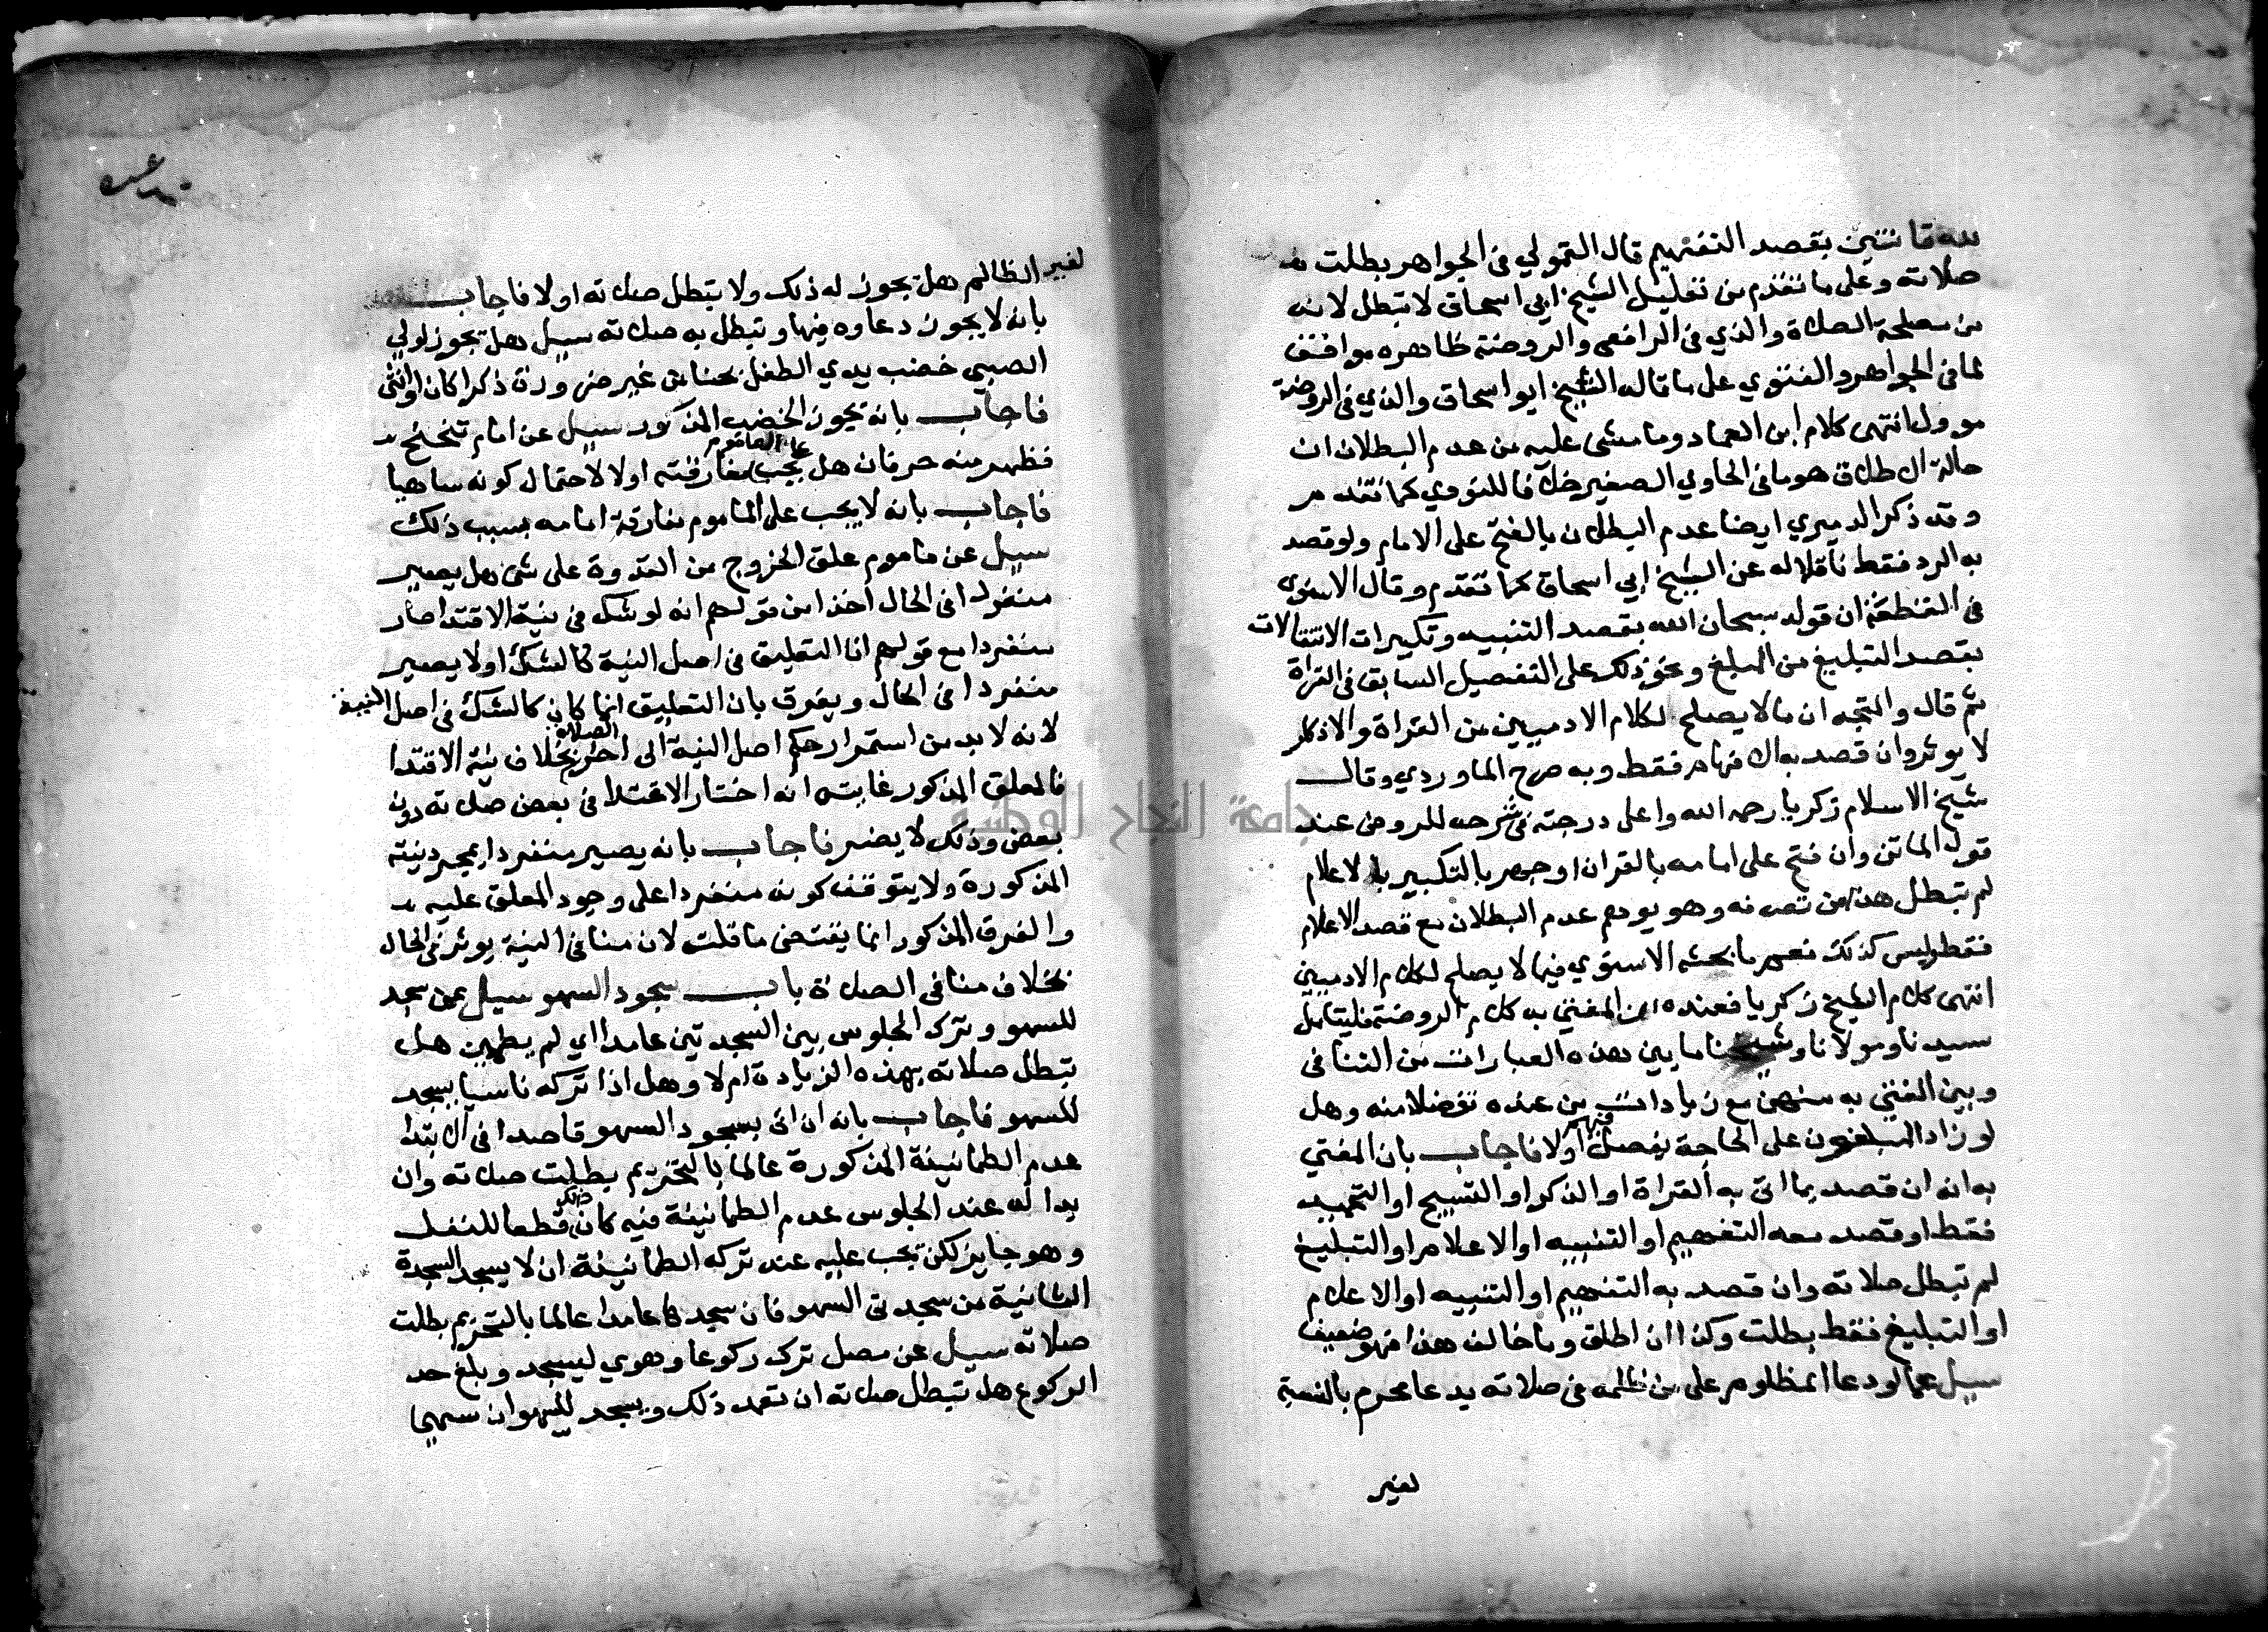 لله قانتين بقصد التفهيم قال القمولي في الجواهر بطلت
صلاته وعلى ما تقدم من تعليل الشيخ ابي اسحاق لا تبطل لانه
من مصلحة الصلاة والذي في الرافعي والروضة ظاهره موافق
لما في الجواهر والفتوي على ما قاله الشيخ ابو اسحاق والذي في الروضة
موول انتهى كلام ابن العماد وما مشى عليه من عدم البطلان ان
حالة الاطلاق هو ما في الحاوي الصغير خلافا للنووي كما تقدم
وقد ذكر الدميري ايضا عدم البطلان بالفتح على الامام ولو قصد
به الرد فقط ناقلا له عن الشيخ ابي اسحاق كما تقدم وقال الاسنوي
في القطعة ان قوله سبحان الله بقصد التنبيه وتكبيرات الانتقالات
بقصد التبليغ من المبلغ ونحو ذلك على التفصيل السابق في القراة
ثم قال والمتجه ان ما لا يصلح لكلام الادميين من القراة والاذكار
لا يوثر وان قصد به الافهام فقط وبه صرح الماوردي وقال
شيخ الاسلام زكريا رحمه الله واعلى درجته في شرحه للروض عند
قول الماتن وان فتح على امامه بالقران او جهر بالتكبير للاعلام
لم تبطل هذا من تصرفه وهو يوهم عدم البطلان مع قصد الاعلام
فقط وليس كذلك نعم ما بحثه الاسنوي فيما لا يصلح لكلام الادميين
انتهى كلام الشيخ زكريا فعنده ان المفتي به كلام الروضة فليتامل
سيدنا ومولانا وشيخنا ما بين هذه العبارات من التنافي
وبين المفتي به منهن مع زيادات من عنده تفضلا منه وهل
لو زاد المبلغون على الحاجة يفصل فيهم اولا فاجاب بان المفتي
به انه ان قصد بما اتى به القراة او الذكر او التسبيح او التحميد
فقط او قصد معه التفهيم او التنبيه او الاعلام او التبليغ
لم تبطل صلاته وان قصد به التفهيم او التنبيه او الاعلام
او التبليغ فقط بطلت وكذا ان اطلق وما خالف هذا فهو ضعيف
سيل عما لو دعا المظلوم على من ظلمه في صلاته بدعا محرم بالنسبة
لغير
لغير الظالم هل يجوز له ذلك ولا تبطل صلاته او لا فاجاب
بانه لا يجوز دعاوه فيها وتبطل به صلاته سيل هل يجوز لولي
الصبي خضب يدي الطفل بحنا من غير ضرورة ذكرا كان او انثى
فاجاب بانه يجوز الخضب المذكور سيل عن امام تنحنح
فظهر منه حرفان هل يجب على الماموم مفارقته او لا لاحتمال كونه ساهيا
فاجاب بانه لا يجب على الماموم مفارقة امامه بسبب ذلك
سيل عن ماموم علق الخروج من القدوة على شي هل يصير
منفردا في الحال اخذا من قولهم انه لو شك في نية الاقتدا صار
منفردا مع قولهم ان التعليق في اصل النية كالشك او لا يصير
منفردا في الحال ويفرق بان التعليق انما كان كالشك في اصل النية
لانه لا بد من استمرار حكم اصل النية الى اخر الصلاة بخلاف نية الاقتدا
فالمعلق المذكور غايته انه اختار الاقتدا في بعض صلاته دون
بعض وذلك لا يضر فاجاب بانه يصير منفردا بمجرد نيته
المذكورة ولا يتوقف كونه منفردا على وجود المعلق عليه
والفرق المذكور انما يقتضي ما قلت لان منافي النية يوثر في الحال
بخلاف منافي الصلاة باب سجود السهو سيل عمن سجد
للسهو وترك الجلوس بين السجدتين عامدا اي لم يطمين هل
تبطل صلاته بهذه الزيادة ام لا وهل اذا تركه ناسيا يسجد
للسهو فاجاب بانه ان اتى بسجود السهو قاصدا في الابتدا
عدم الطمانينة المذكورة عالما بالتحريم بطلت صلاته وان
بدا له عند الجلوس عدم الطمانينة فيه كان ذلك قطعا للنفل
وهو جايز لكن يجب عليه عند تركه الطمانينة ان لا يسجد السجدة
الثانية من سجدتي السهو فان سجدها عامدا عالما بالتحريم بطلت
صلاته سيل عن مصل ترك ركوعا وهوي ليسجد وبلغ حد
الركوع هل تبطل صلاته ان تعمد ذلك ويسجد للسهو ان سهى
جامعة النجاح الوطنية